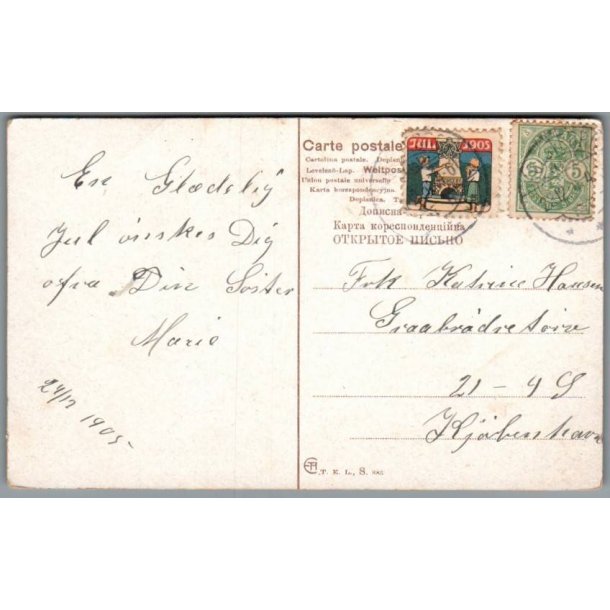 En Glædelig
Jul ønskes Dig
afra Din Søster
Marie
24/12 1905
Carte postale
Cartolina postale. Dopisnica
Levelező-Lap. Weltpost
Union postale universelle
Karta korespondencyjna
Dopisnica.
Дописна
Карта кореспонденційна
ОТКРЫТОЕ ПИСЬМО
JUL 1905
5 5
Frk Katrine Hansen
Graabrødretorv
21 - 4 S
Kjøbenhavn
T. E. L., S. 885